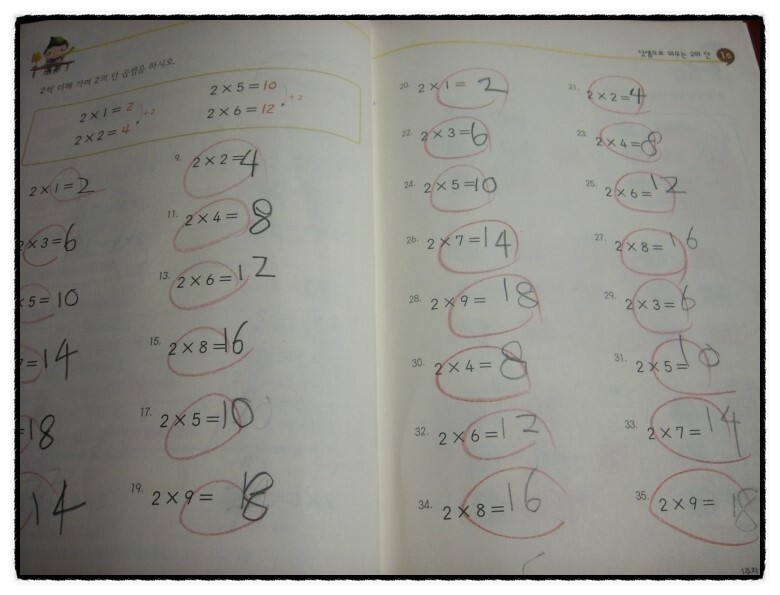 2씩 더해 가며 2의 단 곱셈을 하시오.
2×1=2
2×2=4
+2
2×5=10
2×6=12
+2
2×1=2
9. 2×2=4
×3=6
11. 2×4=8
×5=10
13. 2×6=12
=14
15. 2×8=16
=18
17. 2×5=10
14
19. 2×9=18
덧셈으로 외우는 2의 단
20. 2×1=2
21. 2×2=4
22. 2×3=6
23. 2×4=8
24. 2×5=10
25. 2×6=12
26. 2×7=14
27. 2×8=16
28. 2×9=18
29. 2×3=6
30. 2×4=8
31. 2×5=10
32. 2×6=12
33. 2×7=14
34. 2×8=16
35. 2×9=18